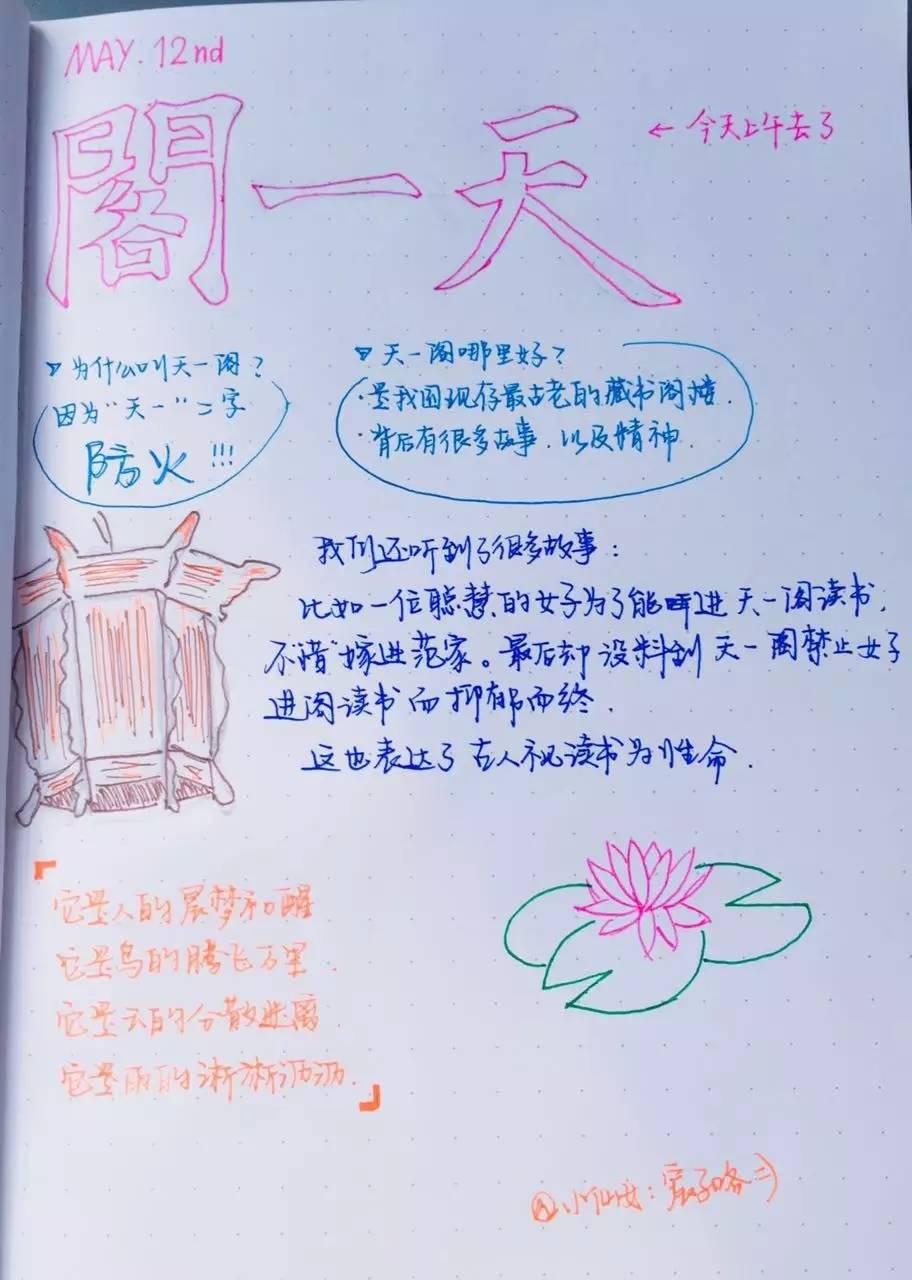 MAY. 12nd
閣一天
← 今天上午去了
为什么叫天一阁？
因为"天一"二字
防火!!!
天一阁哪里好？
·是我国现存最古老的藏书阁楼.
·背后有很多故事.以及精神.
我们还听到了很多故事：
比如一位聪慧的女子为了能进天一阁读书,
不惜嫁进范家。最后却没料到天一阁禁止女子
进阁读书而抑郁而终.
这也表达了古人视读书为性命.
它是人的晨梦和醒
它是鸟的腾飞万里.
它是云的分散
它是雨的淅淅沥沥.
@小仙女：